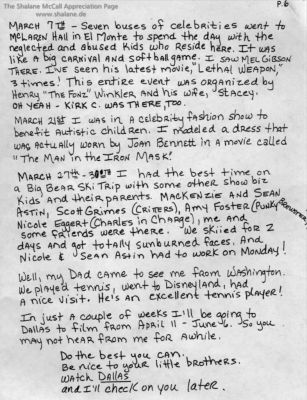 The Shalane McCall Appreciation Page
www.shalane.de
P.6
MARCH 17th - Seven buses of celebrities went to
McLaren Hall in El Monte to spend the day with the
neglected and abused kids who reside here. It was
like a big carnival and softball game. I saw Mel Gibson
THERE. I've seen his latest movie, "Lethal Weapon,"
3 times! This entire event was organized by
Henry "The Fonz" Winkler and his wife, Stacey.
OH YEAH - KIRK C. WAS THERE, TOO.
MARCH 21st I was in a celebrity fashion show to
benefit autistic children. I modeled a dress that
was actually worn by Joan Bennett in a movie called
"The Man in the Iron Mask!"
MARCH 27th - 30th I had the best time on
a Big Bear Ski Trip with some other show biz
kids and their parents. MacKenzie and Sean
Astin, Scott Grimes (Criters), Amy Foster (Punky Brewster),
Nicole Eggert (Charles in Charge), me and
some friends were there. We skiied for 2
days and got totally sunburned faces. And
Nicole & Sean Astin had to work on Monday!
Well, my Dad came to see me from Washington.
We played tennis, went to Disneyland, had
a nice visit. He's an excellent tennis player!
In just a couple of weeks I'll be going to
Dallas to film from April 11 - June 6. So you
may not hear from me for awhile.
Do the best you can.
Be nice to your little brothers.
Watch DALLAS
and I'll check on you later.